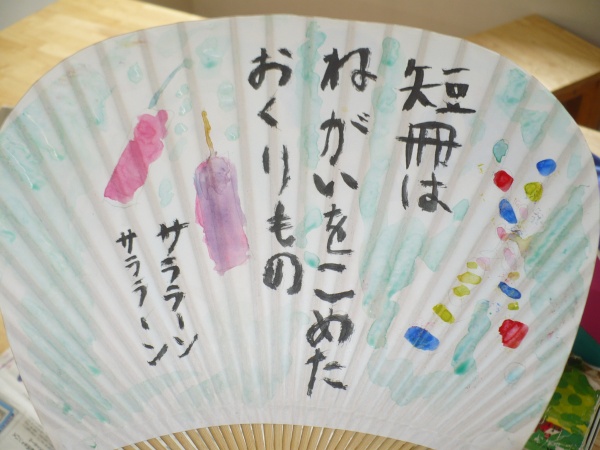 短冊は
ねがいをこめた
おくりもの
サララーン
サララーン